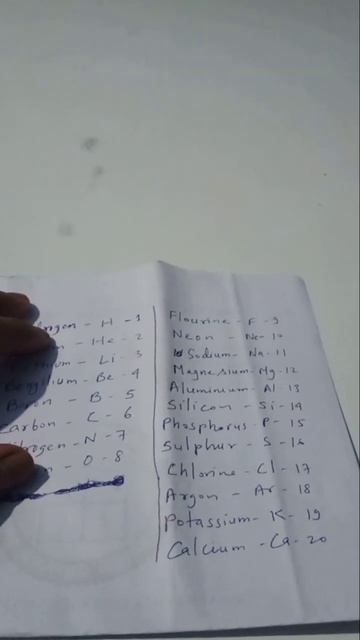 ogen - H - 1
He - 2
ium - Li - 3
Beryllium - Be - 4
Boron - B - 5
Carbon - C - 6
itrogen - N - 7
n - O - 8
Flourine - F - 9
Neon - Ne - 10
Sodium - Na - 11
Magnesium - Mg - 12
Aluminium - Al - 13
Silicon - Si - 14
Phosphorus - P - 15
Sulphur - S - 16
Chlorine - Cl - 17
Argon - Ar - 18
Potassium - K - 19
Calcium - Ca - 20